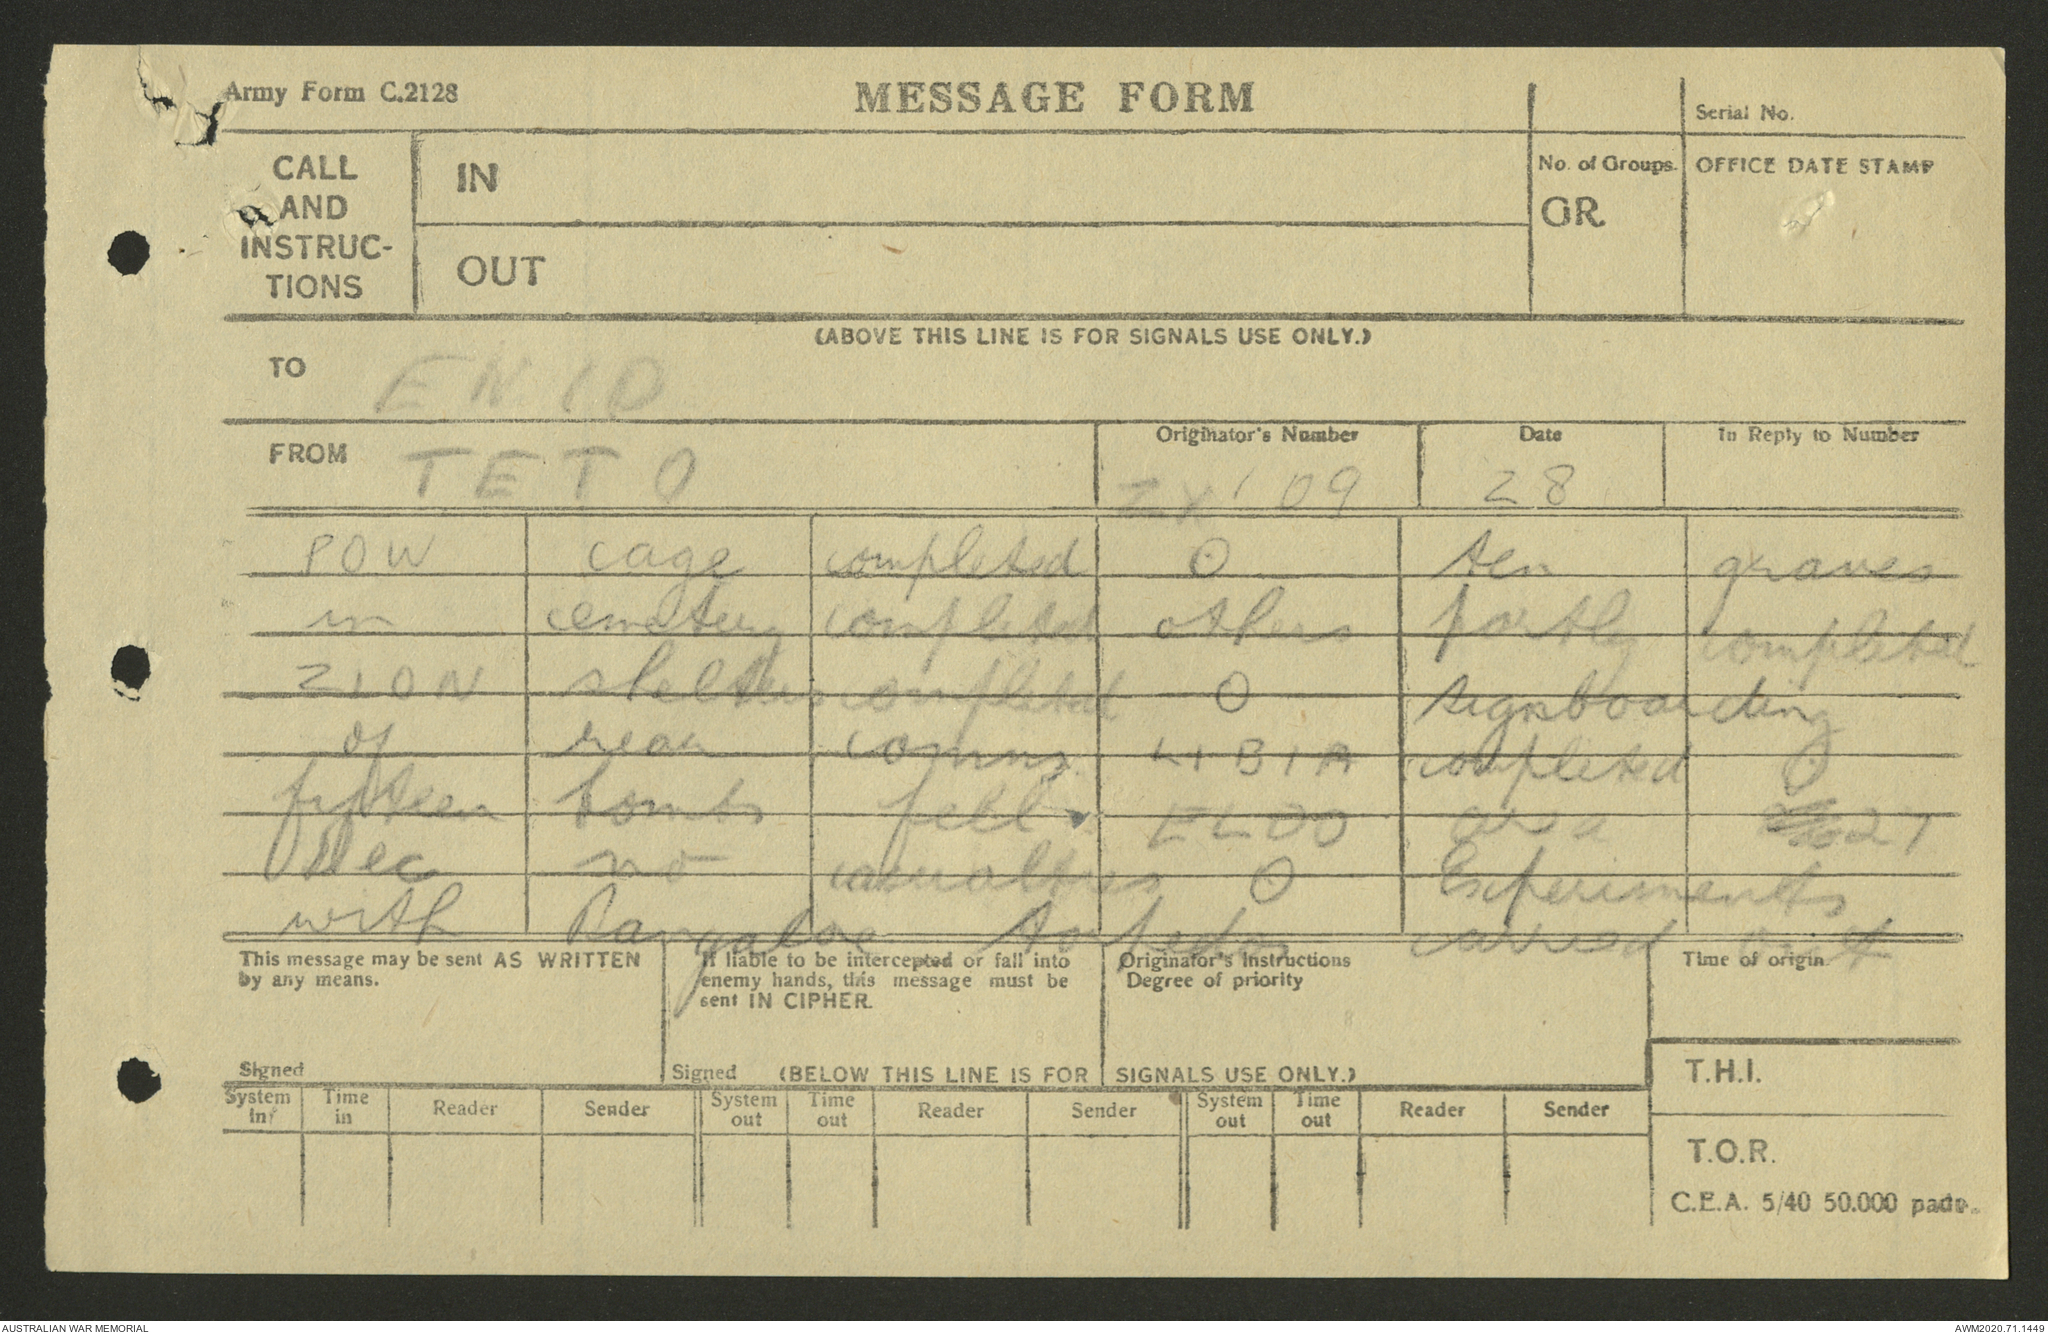 Army Form C.2128
MESSAGE FORM
Serial No.
CALL AND INSTRUC-TIONS
IN
No. of Groups.
GR.
OFFICE DATE STAMP
OUT
(ABOVE THIS LINE IS FOR SIGNALS USE ONLY.)
TO ENID
FROM TETO
Originator's Number
Date 28
In Reply to Number
POW cage completed O ten graves
in cemetery completed others partly completed
ZION shelters completed O signboarding
of rear comns LIBIA completed O
fifteen bombs fell ELDO area 27
Dec no casualties O Experiments
with Bangalore torpedos carried out
This message may be sent AS WRITTEN by any means.
Signed
If liable to be intercepted or fall into enemy hands, this message must be sent IN CIPHER.
Signed
Originator's Instructions
Degree of priority
Time of origin.
(BELOW THIS LINE IS FOR SIGNALS USE ONLY.)
T.H.I.
System in
Time in
Reader
Sender
System out
Time out
Reader
Sender
System out
Time out
Reader
Sender
T.O.R.
C.E.A. 5/40 50.000 pads.
AUSTRALIAN WAR MEMORIAL
AWM2020.71.1449